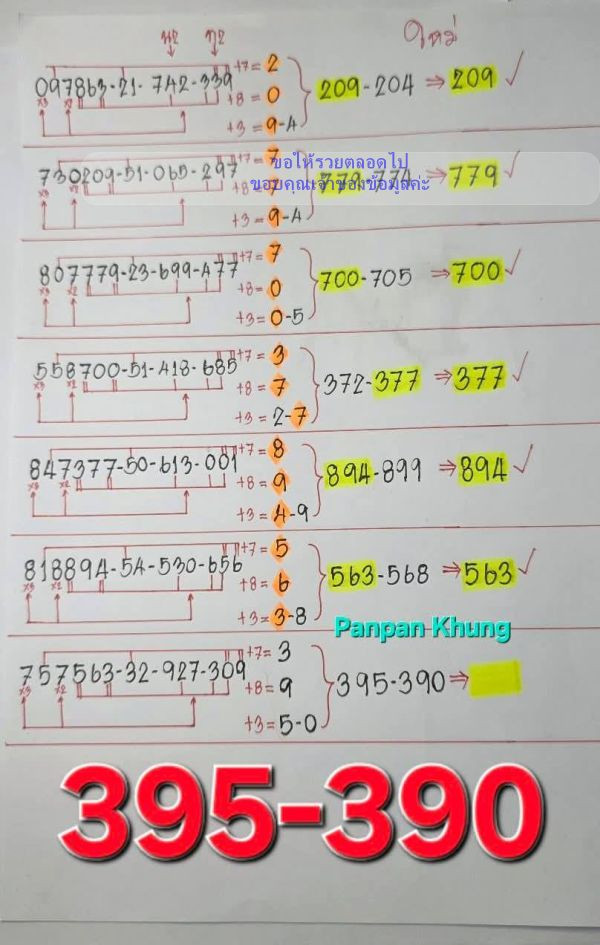 ใหม่
097863-21-742-339 +7= 2
x3 x2 +8= 0 209-204 ⇒ 209 ✓
+3= 9-4
730209-51-065-297 +7= 7
ขอให้รวยตลอดไป
779-774 ⇒ 779 ✓
ขอบคุณเจ้าของข้อมูลค่ะ
+3= 9-4
807779-23-699-477 +7= 7
x3 x2 +8= 0 700-705 ⇒ 700 ✓
+3= 0-5
558700-51-418-685 +7= 3
x3 x2 +8= 7 372-377 ⇒ 377 ✓
+3= 2-7
847377-50-613-001 +7= 8
x3 x2 +8= 9 894-899 ⇒ 894 ✓
+3= 4-9
818894-54-530-656 +7= 5
x3 x2 +8= 6 563-568 ⇒ 563 ✓
+3= 3-8
Panpan Khung
757563-32-927-309 +7= 3
x3 x2 +8= 9 395-390 ⇒
+3= 5-0
395-390